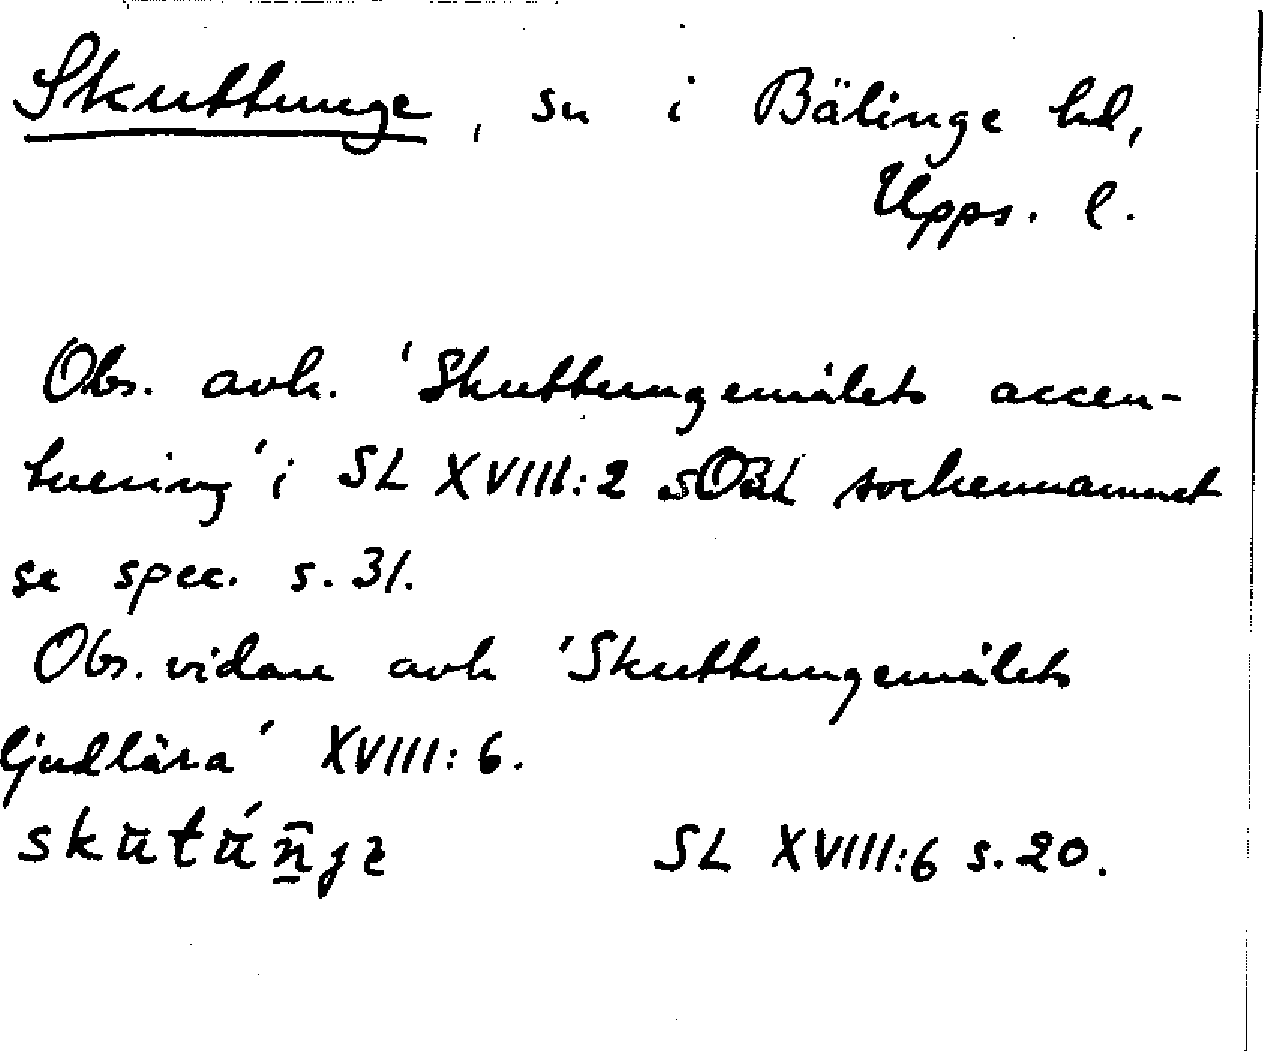 Skuttunge, sn i Bälinge hd,
Upps. l.
Obs. avh. 'Skuttungemålets accen-
tuering' i SL XVIII:2 s OBL sockennamnet
se spec. s. 31.
Obs. vidare avh 'Skuttungemålets
ljudlära' XVIII:6.
SL XVIII:6 s. 20.